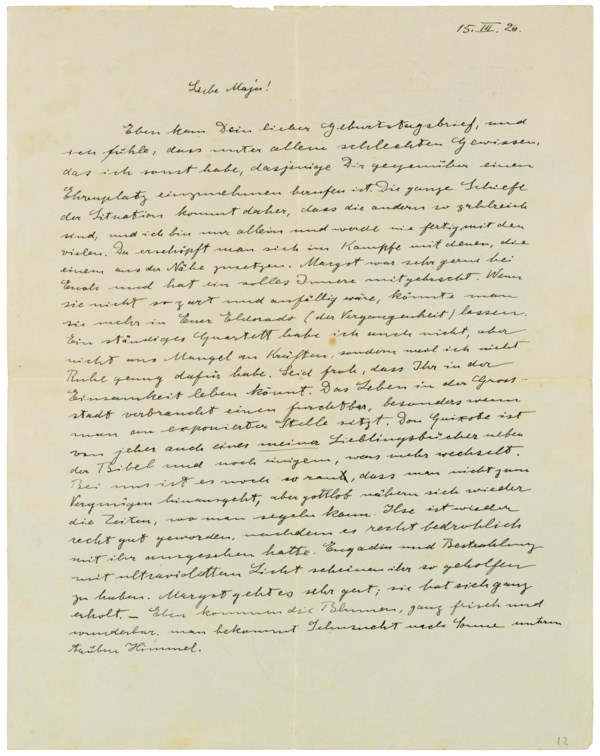 15. III. 26.
Liebe Maja!
Eben kam Dein lieber Geburtstagsbrief, und
ich fühle, dass unter allen schlechten Gewissen,
das ich sonst habe, dasjenige Dir gegenüber einen
Ehrenplatz einzunehmen berufen ist. Die ganze Schiefh
der Situation kommt daher, dass die andern so zahlreich
sind, und ich bin nur allein und werde nie fertig mit den
vielen. Da erschöpft man sich im Kampfe mit denen, die
einem aus der Nähe zusetzen. Margot war sehr gern bei
Euch und hat ein volles Innere mitgebracht. Wenn
sie nicht so zart und anfällig wäre, könnte man
sie mehr in Euer Eldorado (der Vergangenheit) lassen.
Ein ständiges Quartett habe ich auch nicht, aber
nicht aus Mangel an Kräften, sondern weil ich nicht
Ruhe genug dafür habe. Seid froh, dass Ihr in der
Einsamkeit leben könnt. Das Leben in der Gross-
stadt verbraucht einen furchtbar, besonders wenn
man an exponierter Stelle sitzt. Don Quixote ist
von jeher auch eines meiner Lieblingsbücher neben
der Bibel und noch einigem, was mehr wechselt.
Bei uns ist es noch so rauh, dass man nicht zum
Vergnügen hinausgeht, aber gottlob nähern sich wieder
die Zeiten, wo man segeln kann. Ilse ist wieder
recht gut geworden, nachdem es recht bedrohlich
mit ihr ausgesehen hatte. Engadin und Bestrahlung
mit ultraviolettem Licht scheinen ihr so geholfen
zu haben. Margot geht es sehr gut; sie hat sich ganz
erholt. – Eben kommen die Blumen, ganz frisch und
wunderbar, man bekommt Sehnsucht nach Sonne unterm
Himmel.
12